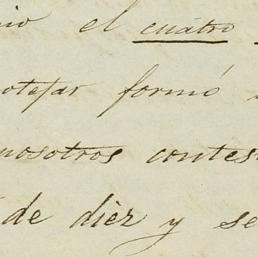 nio el cuátro
otejar formó
nosotros contes
de diez y se